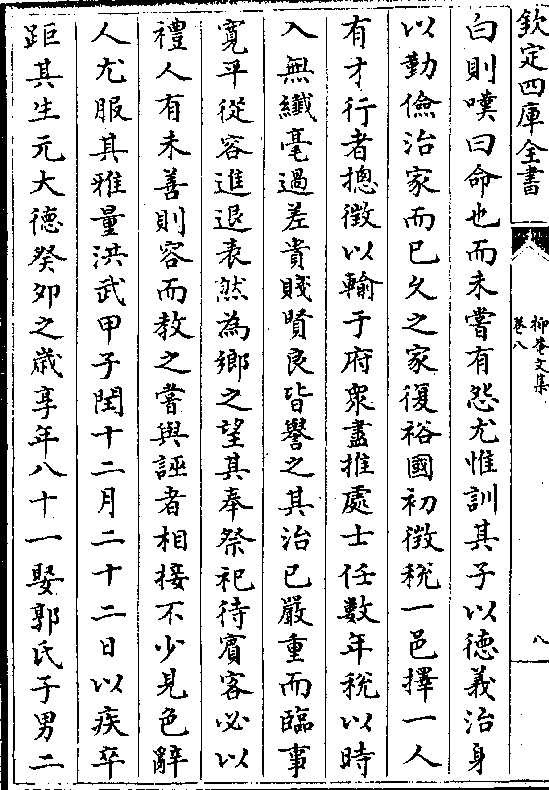 欽定四庫全書
柳菴文集
卷八
八
白則嘆曰命也而未嘗有怨尤惟訓其子以德義治身
以勤儉治家而已久之家復裕國初徴稅一邑擇一人
有才行者摠徴以輸于府衆盡推處士任數年稅以時
入無纖毫過差貴賤賢良皆譽之其治已嚴重而臨事
寛平從容進退表然為鄉之望其奉祭祀待賓客必以
禮人有未善則容而教之嘗與誣者相接不少見色辭
人尤服其雅量洪武甲子閏十二月二十二日以疾卒
距其生元大德癸夘之歳享年八十一娶郭氏子男二